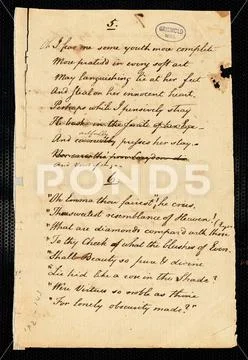 5.
GRISWOLD
MSS.
I fear me some youth more complete
More practised in every soft art
May languishing lie at her feet
And steal on her innocent heart.
Perhaps while I pensively stray
He basks in the smile of her Eye
And artfully presses her stay
POND5
6.
"Oh Emma thou fairest", he cries,
"Thou sweetest resemblance of Heaven!
"What are diamonds compar'd with thine Eyes
"To thy Cheek of what the blushes of Even
"Shall Beauty so pure & divine
"Lie hid like a in this Shade?
"Were Virtues so noble as thine
"For lonely obscurity made?"